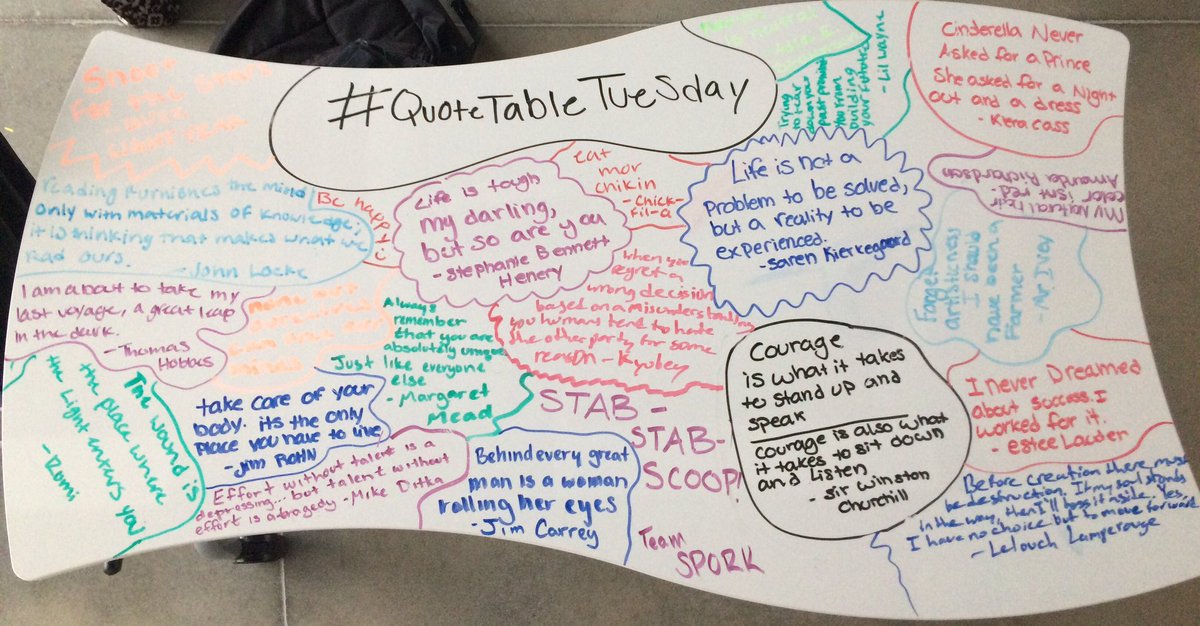 #QuoteTableTuesday
Shoot
For the stars
reading furnishes the mind
only with materials of knowledge,
it is thinking that makes what we
read ours.
- John Locke
Be happy!
I am about to take my
last voyage, a great leap
in the dark.
- Thomas
Hobbes
The wound is
the place where
the Light enters you
- Rumi
Life is tough
my darling,
but so are you
- Stephanie Bennett
Henery
eat
mor
chikin
- Chick-
Fil-a
Trying
to tear
down your
past prevents
you from
building
your future
- Lil Wayne
Cinderella Never
Asked for a Prince
She asked for a Night
out and a dress
- Kiera cass
My Natural hair
color isnt red.
Amanda Richardson
Life is not a
problem to be solved,
but a reality to be
experienced.
- Saren Kierkegaard
Forget
artisticness
I should
have been a
Farmer
- Mr. Ivey
when you
regret a
wrong decision
based on a misunderstanding
you humans tend to hate
the other party for some
reason - Kyubey
Always
remember
that you are
absolutely unique
Just like everyone
else
- Margaret
Mead
take care of your
body. its the only
place you have to live
- Jim Rohn
Effort without talent is a
depressing... but talent without
effort is a tragedy - Mike Ditka
Behind every great
man is a woman
rolling her eyes
- Jim Carrey
STAB -
STAB -
SCOOP!
Team
SPORK
Courage
is what it takes
to stand up and
speak
courage is also what
it takes to sit down
and Listen
- Sir Winston
Churchill
I never Dreamed
about success. I
worked for it.
- Estee Lauder
Before creation there must
be destruction. If my soul stands
in the way, then I'll toss it aside. Yes,
I have no choice but to move forward
- Lelouch Lamperouge